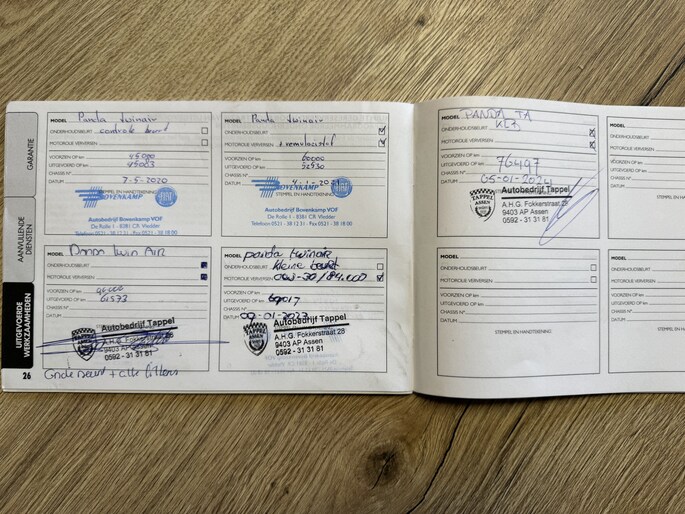 GARANTIE
AANVULLENDE
DIENSTEN
UITGEVOERDE
WERKZAAMHEDEN
26
MODEL Panda twinair
ONDERHOUDSBEURT controle beurt
MOTOROLIE VERVERSEN
VOORZIEN OP km 45000
UITGEVOERD OP km
CHASSIS Nº
DATUM 7-5-2020
STEMPEL EN HANDTEKENING
BOVENKAMP FIAT
Autobedrijf Bovenkamp VOF
De Rolle 1 - 8381 CR Vledder
Telefoon 0521 - 38 12 31 - Fax 0521 - 38 18 00
MODEL Panda twinair
ONDERHOUDSBEURT
MOTOROLIE VERVERSEN + remvloeistof
VOORZIEN OP km 60000
UITGEVOERD OP km 52930
CHASSIS Nº
DATUM 4-1-202
STEMPEL EN HANDTEKENING
BOVENKAMP FIAT
Autobedrijf Bovenkamp VOF
De Rolle 1 - 8381 CR Vledder
Telefoon 0521 - 38 12 31 - Fax 0521 - 38 18 00
MODEL Panda Twin AIR
ONDERHOUDSBEURT
MOTOROLIE VERVERSEN
VOORZIEN OP km
UITGEVOERD OP km 61573
CHASSIS Nº
DATUM
TAPPEL
ASSEN
Autobedrijf Tappel
A.H.G. Fokkerstraat 28
9403 AP Assen
0592 - 31 31 81
Onderbeurt + alle filters
MODEL panda twinair
ONDERHOUDSBEURT kleine beurt
MOTOROLIE VERVERSEN
VOORZIEN OP km
UITGEVOERD OP km 69017
CHASSIS Nº
DATUM 09-01-2023
TAPPEL
ASSEN
Autobedrijf Tappel
A.H.G. Fokkerstraat 28
9403 AP Assen
0592 - 31 31 81
MODEL PANDA TA
ONDERHOUDSBEURT
MOTOROLIE VERVERSEN
VOORZIEN OP km
UITGEVOERD OP km 76497
CHASSIS Nº
DATUM 05-01-2024
STEMPEL EN HANDTEKENING
TAPPEL
ASSEN
Autobedrijf Tappel
A.H.G. Fokkerstraat 28
9403 AP Assen
0592 - 31 31 81
MODEL
ONDERHOUDSBEURT
MOTOROLIE VERVERSEN
VOORZIEN OP km
UITGEVOERD OP km
CHASSIS Nº
DATUM
STEMPEL EN HANDTEKENING
MODEL
ONDERHOUDSBEURT
MOTOROLIE VERVERSEN
VOORZIEN OP km
UITGEVOERD OP km
CHASSIS Nº
DATUM
MODEL
ONDERHOUDSBEURT
MOTOROLIE VERVERSEN
VOORZIEN OP km
UITGEVOERD OP km
CHASSIS Nº
DATUM